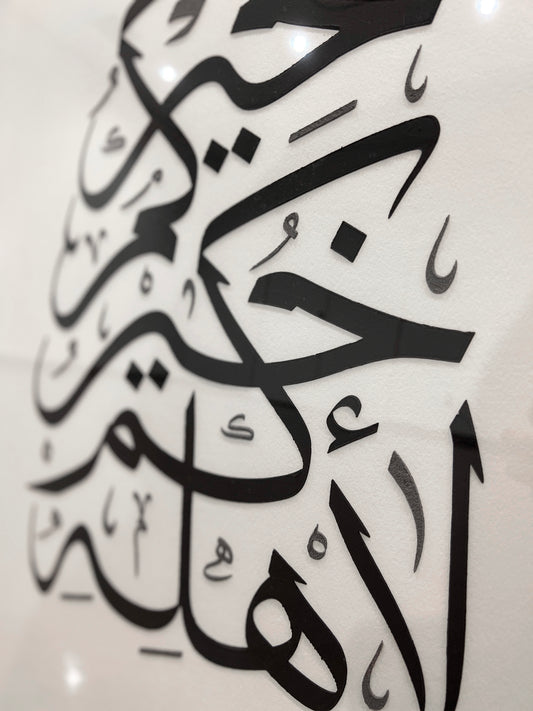 خيركم
خيركم
لأهلهِ